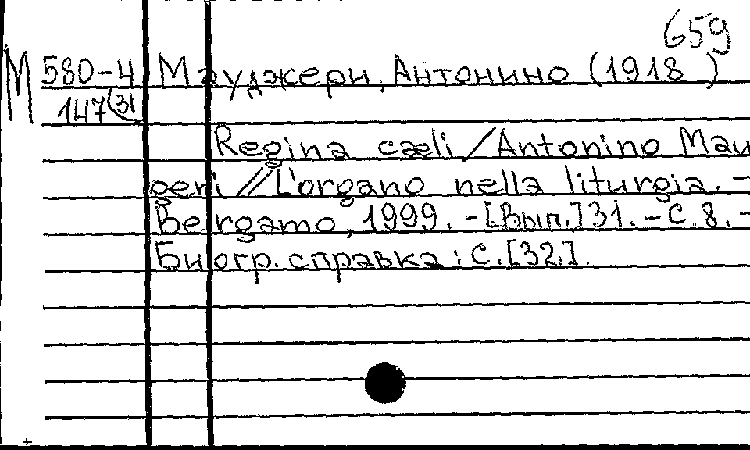 659
М 580-4 Мауджери, Антонино (1918 )
147(31
Regina cæli / Antonino Mau
geri // L'organo nella liturgia. -
Bergamo, 1999. - [Вып.] 31. - С. 8. -
Биогр. справка: с. [32].